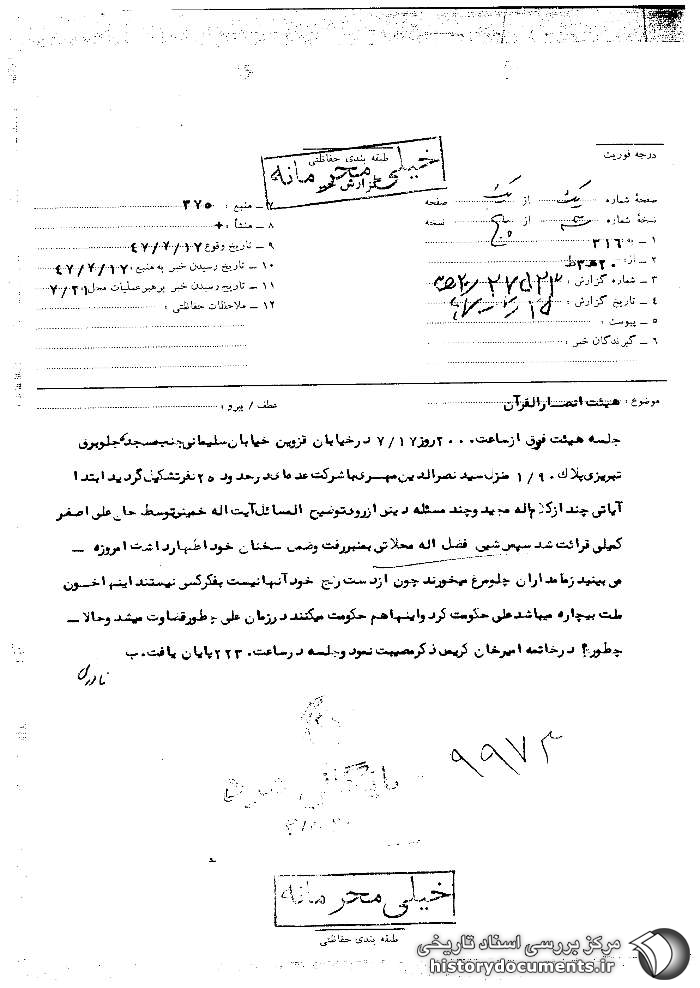 درجه فوریت
طبقه بندی حفاظتی
خیلی محرمانه
گزارش خبر
صفحهٔ شماره یک از یک صفحه
نسخهٔ شماره از پنج نسخه
۱ ـ به ۳۱۶
۲ ـ از: ۲۰ ه‍ ۳
۳ ـ شماره گزارش :
۴ ـ تاریخ گزارش :
۵ ـ پیوست :
۶ ـ گیرندگان خبر :
۷ ـ منبع : ۳۷۵
۸ ـ منشأ :
۹ ـ تاریخ وقوع ۴۷/۷/۱۷
۱۰ ـ تاریخ رسیدن خبر به منبع : ۴۷/۷/۱۷
۱۱ ـ تاریخ رسیدن خبر برهبر عملیات محل ۷/۲۱
۱۲ ـ ملاحظات حفاظتی :
موضوع : هیئت انصارالقرآن
عطف / پیرو :
جلسه هیئت فوق از ساعت ۲۰۰۰ روز ۷/۱۷ در خیابان قزوین خیابان سلیمانی جنب مسجد جلوبری
تبریزی پلاک ۱/۹۰ منزل سید نصرالدین میری با شرکت عده ای در حدود ۲۵ نفر تشکیل گردید ابتدا
آیاتی چند از کلام اله مجید و چند مسئله دینی از روی توضیح المسائل آیت اله خمینی توسط حاج علی اصغر
کمیلی قرائت شد سپس شیخ فضل اله محلاتی بمنبر رفت و ضمن سخنان خود اظهار داشت امروزه ـ
می بینید زمامداران چلومرغ میخورند چون از دست رنج خود آنها نیست بفکر کسی نیستند اینها خون
ملت بیچاره میباشد علی حکومت کرد و اینها هم حکومت میکنند در زمان علی چطور قضاوت میشد و حالا ـ
چطور؟ در خاتمه امیرخان کریمی ذکر مصیبت نمود و جلسه در ساعت ۲۲۳۰ پایان یافت. ب
نادری
۹۹۷۳
خیلی محرمانه
طبقه بندی حفاظتی
مرکز بررسی اسناد تاریخی
historydocuments.ir